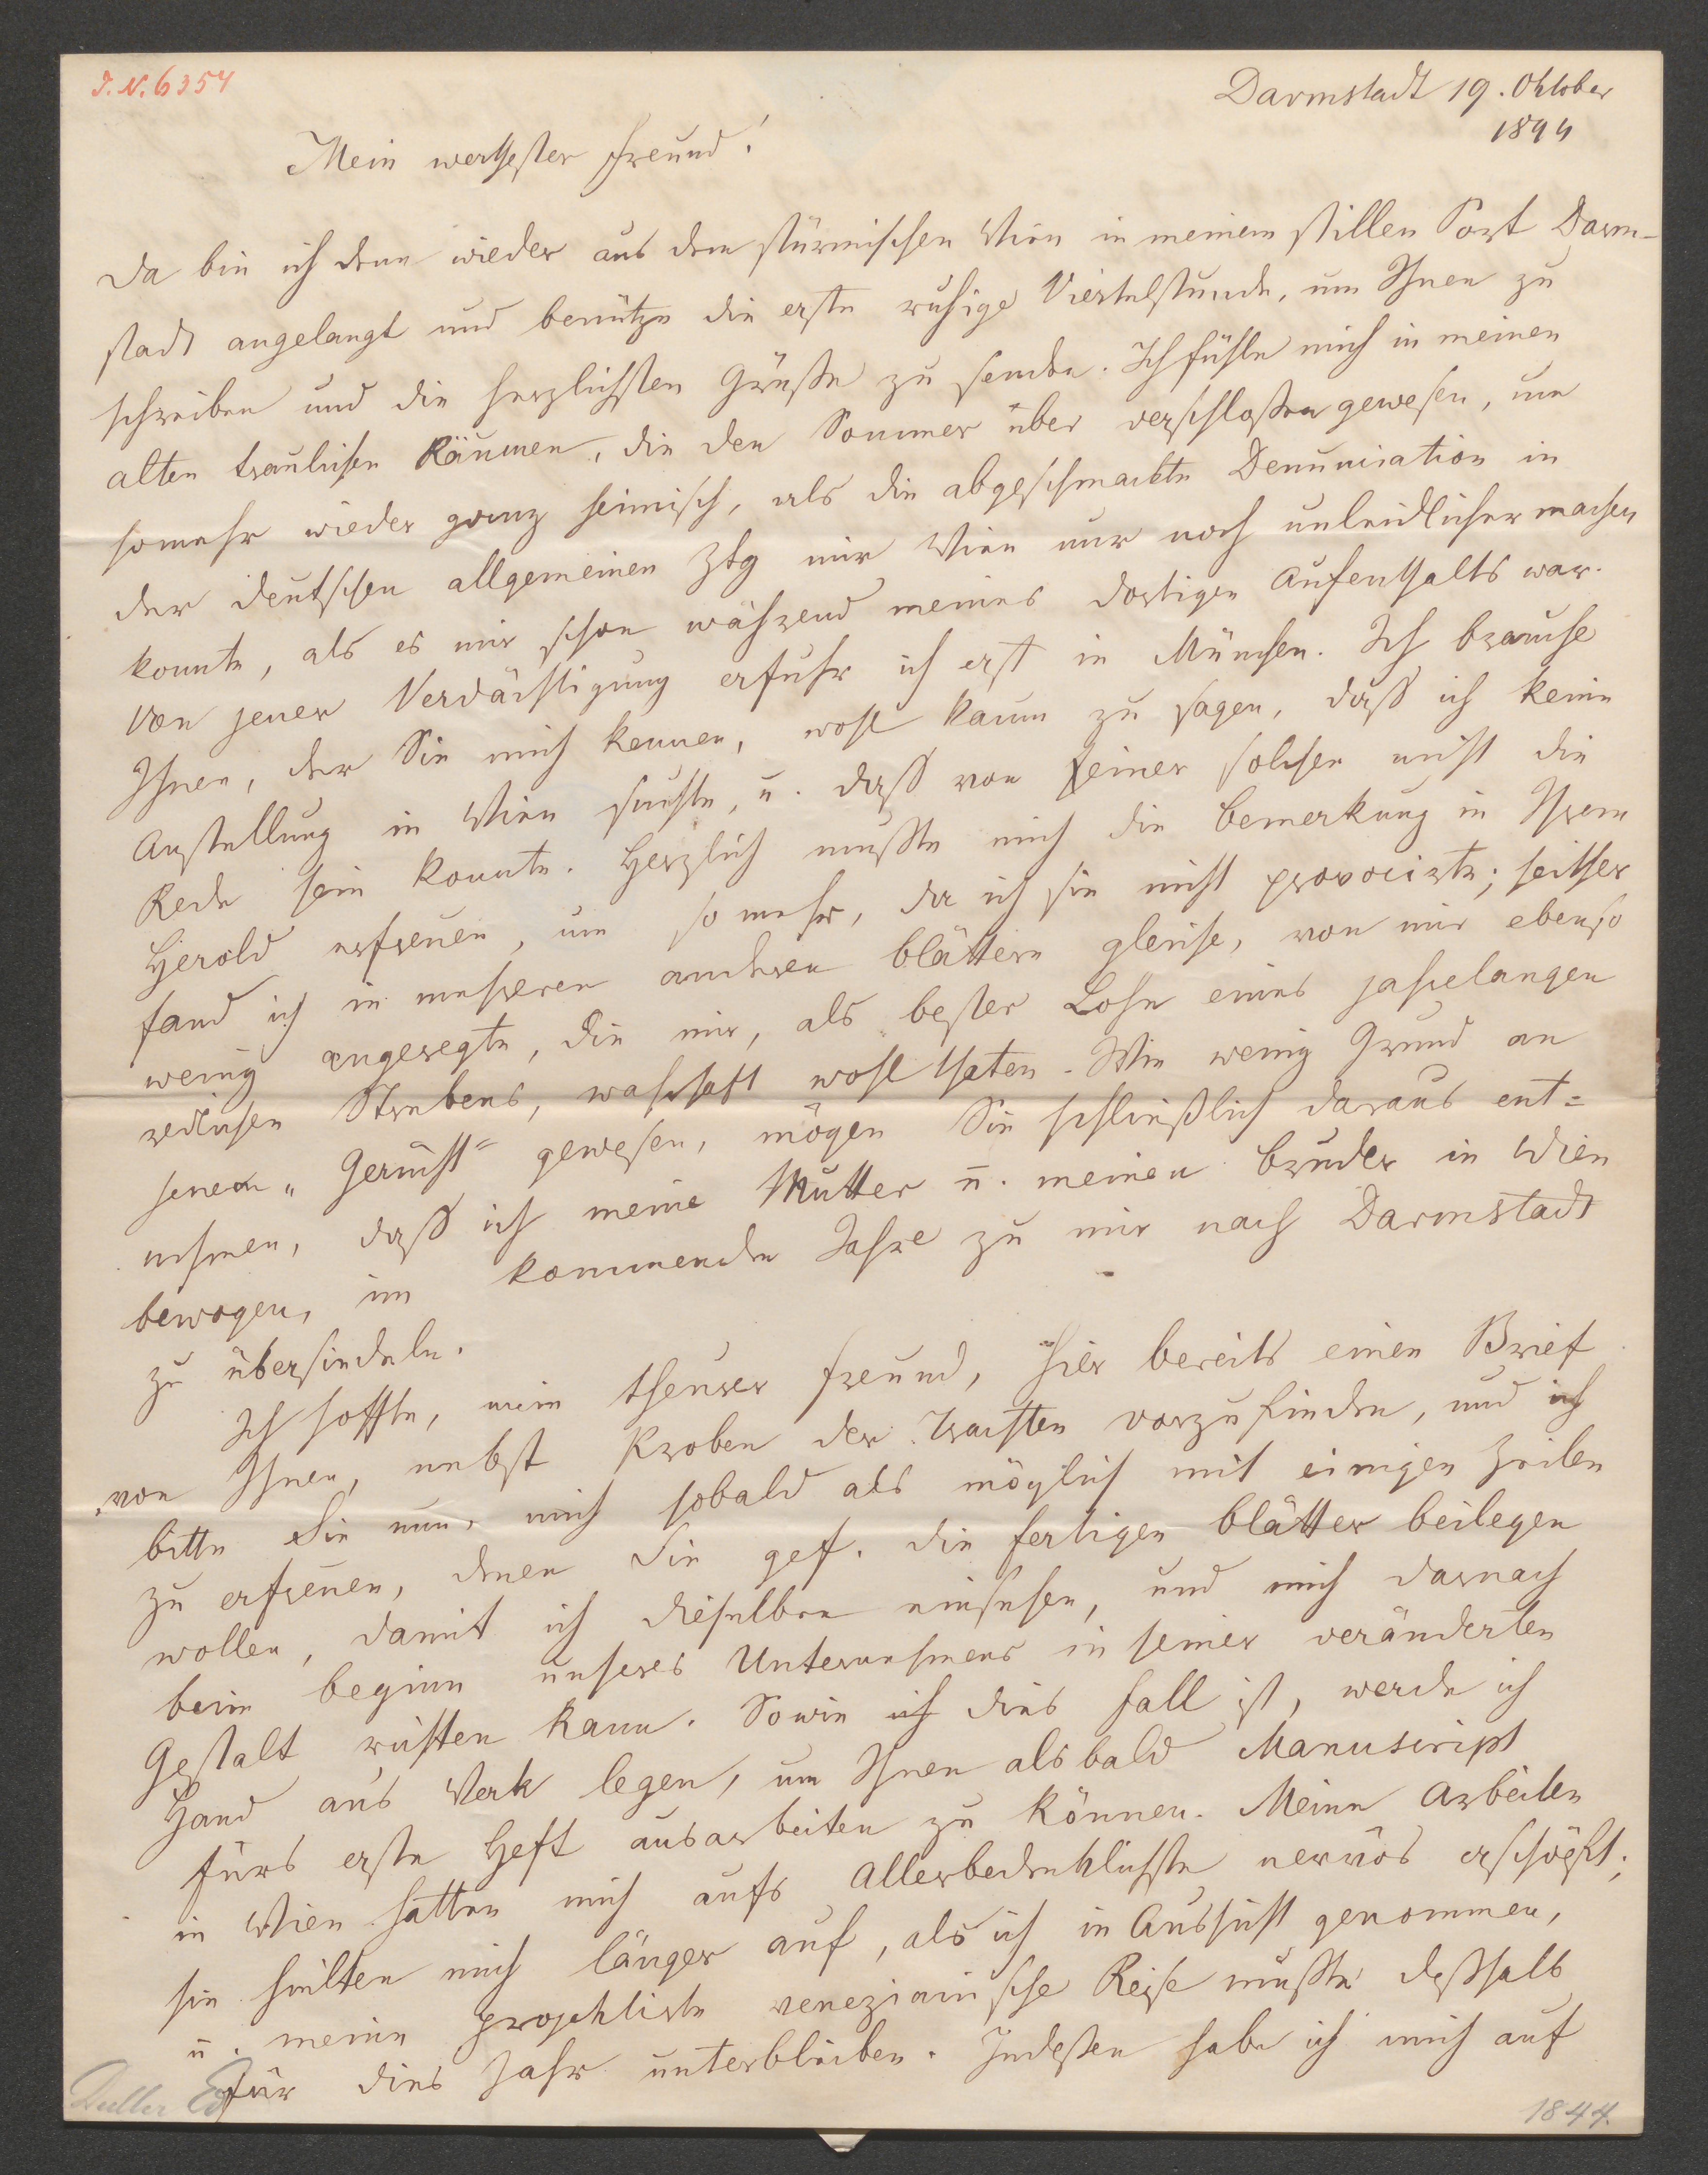 J. N. 6354
Darmstadt 19. Oktober
1844
Mein werthester Freund!
Da bin ich denn wieder aus dem stürmischen Wien in meinem stillen Port Darm-
stadt angelangt und benütze die erste ruhige Viertelstunde, um Ihnen zu
schreiben und die herzlichsten Grüße zu senden. Ich fühle mich in meinen
alten traulichen Räumen, die den Sommer über verschloßen gewesen, um
somehr wieder ganz heimisch, als die abgeschmackte Denunciation in
der deutschen allgemeinen Ztg mir Wien nur noch unleidlicher machen
konnte, als es mir schon während meines dortigen Aufenthalts war.
Von jener Verdächtigung erfuhr ich erst in München. Ich brauche
Ihnen, der Sie mich kennen, wohl kaum zu sagen, daß ich keine
Anstellung in Wien suchte, u. daß von einer solchen nicht die
Rede sein konnte. Herzlich mußte mich die Bemerkung in Ihrem
Herold erfreuen, um so mehr, da ich sie nicht provocirte; seither
fand ich in mehreren anderen Blättern gleiche, von mir ebenso
wenig angeregte, die mir, als bester Lohn eines jahrelangen
redlichen Strebens, wahrhaft wohl thaten. Wie wenig Grund an
jenem „Gerücht" gewesen, mögen Sie schließlich daraus ent=
nehmen, daß ich meine Mutter u. meinen Bruder in Wien
bewogen, im kommenden Jahre zu mir nach Darmstadt
zu übersiedeln.
Ich hoffte, mein theurer Freund, hier bereits einen Brief
von Ihnen, nebst Proben der Trachten vorzufinden, und ich
bitte Sie nun, mich sobald als möglich mit einigen Zeilen
zu erfreuen, denen Sie gef. die fertigen Blätter beilegen
wollen, damit ich dieselben einsehen, und mich darnach
beim Beginn unseres Unternehmens in seiner veränderten
Gestalt richten kann. Sowie ich dies Fall ist, werde ich
Hand ans Werk legen, um Ihnen alsbald Manuscript
fürs erste Heft ausarbeiten zu können. Meine Arbeiten
in Wien hatten mich aufs Allerbedenklichste nervös erschöpft;
sie hielten mich länger auf, als ich in Aussicht genommen,
u. meine projektirte venezianische Reise mußte deßhalb
für dies Jahr unterbleiben. Indeßen habe ich mich auf
Duller Ed
1844.